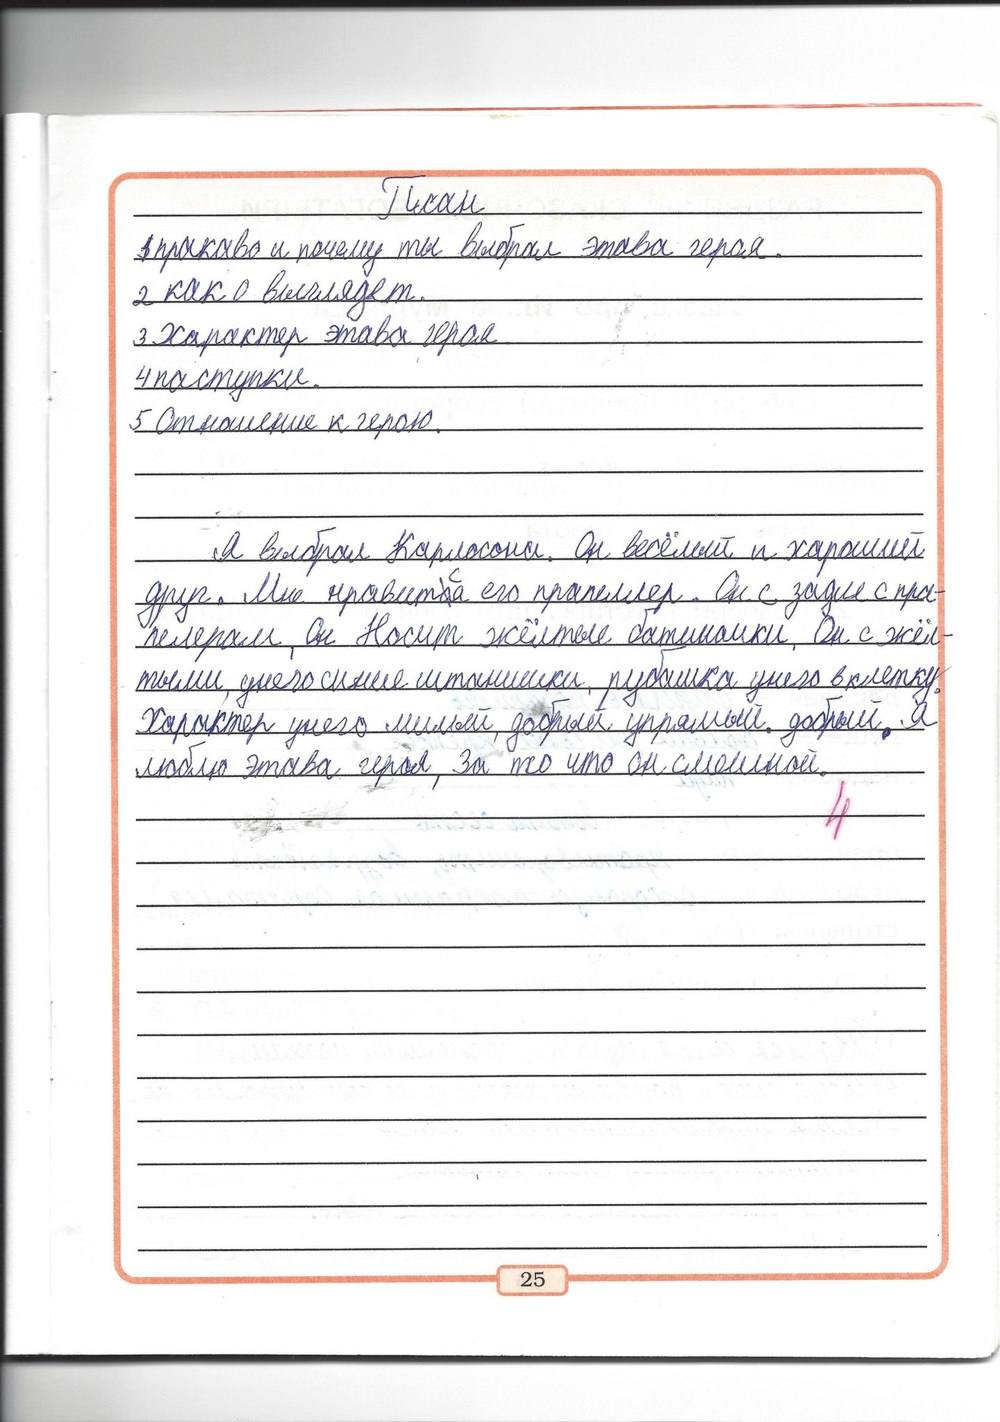 План
1 пракаво и почему ты выбрал этава героя.
2 как о выглядет.
3 Характер этава героя
4 паступки.
5 Отношение к герою.
Я выбрал Карлосона. Он весёлый и хароший
друг. Мне нравится его прапеллер. Он с зади с пра-
пелерам, Он Носит жёлтые батиночки, Он с жёл-
тыми, унего синие штанишки, рубашка унего в клетку.
Характер унего милый, добрый упрямый. добрый. Я
люблю этава героя, За то что он смешной.
4
25